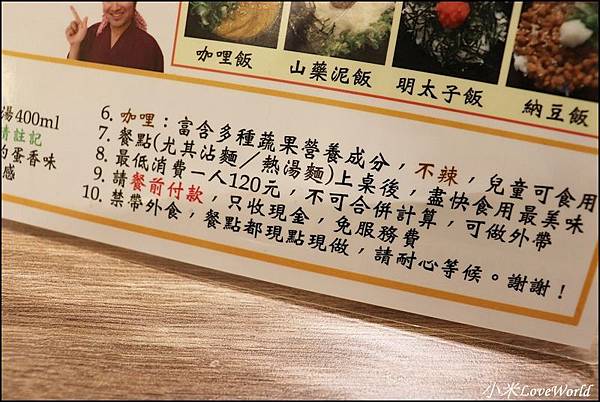 咖哩飯
山藥泥飯
明太子飯
納豆飯
湯400ml
請註記
的蛋香味
感
6. 咖哩：富含多種蔬果營養成分，不辣，兒童可食用
7. 餐點(尤其沾麵／熱湯麵)上桌後，盡快食用最美味
8. 最低消費一人120元，不可合併計算，可做外帶
9. 請餐前付款，只收現金，免服務費
10. 禁帶外食，餐點都現點現做，請耐心等候。謝謝！
小米LoveWorld